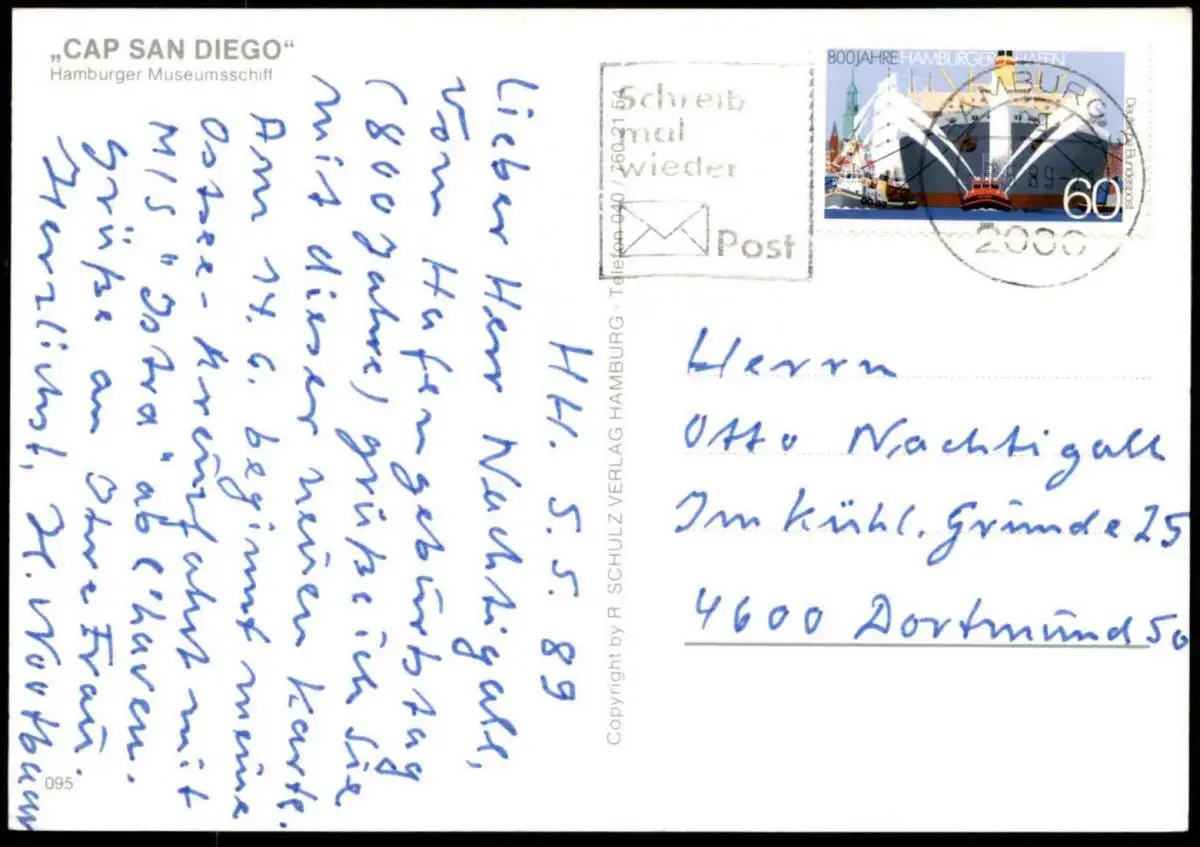 „CAP SAN DIEGO“
Hamburger Museumsschiff
HH. 5.5.89
Lieber Herr Nachtigall,
vom Hafengeburtstag
(800 Jahre) grüße ich Sie
mit dieser neuen Karte.
Am 14.6. beginnt meine
Ostsee-Kreuzfahrt mit
M/S "Istra" ab C'haven.
Grüße an Ihre Frau.
Herzlichst, H.
095
Copyright by R. SCHULZ VERLAG HAMBURG · Telefon 040 / 760 21 54
Schreib
mal
wieder
Post
800 JAHRE HAMBURGER HAFEN
Deutsche Bundespost
60
HAMBURG
89
2000
Herrn
Otto Nachtigall
Im Kühl. Grunde 25
4600 Dortmund 50